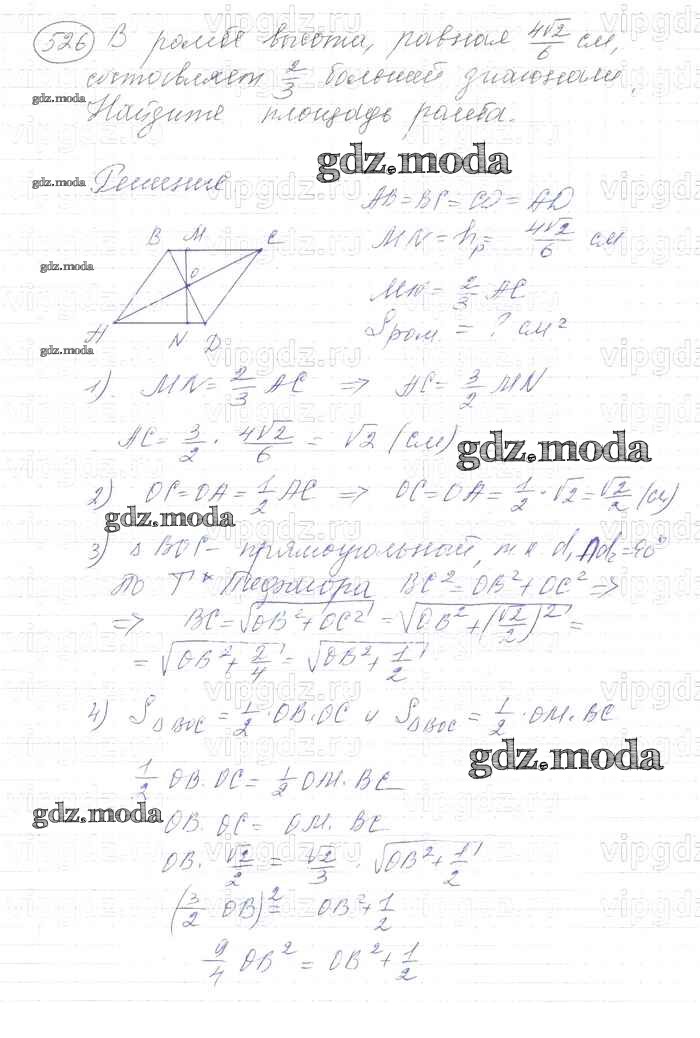 526 В ромбе высота, равная 4√2/6 см,
составляет 2/3 большей диагонали.
gdz.moda
Найдите площадь ромба.
gdz.moda
gdz.moda Решение
AB = BC = CD = AD
B M C
MN = hр = 4√2/6 см
gdz.moda
O
MN = 2/3 AC
A N D
Sром. = ? см²
gdz.moda
1) MN = 2/3 AC => AC = 3/2 MN
AC = 3/2 · 4√2/6 = √2 (см)
gdz.moda
2) OC = OA = 1/2 AC => OC = OA = 1/2 · √2 = √2/2 (см)
gdz.moda
3) △BOC – прямоугольный, т.к d₁∩d₂ = 90°
По Т* Пифагора BC² = OB² + OC² =>
=> BC = √(OB² + OC²) = √(OB² + (√2/2)²) =
= √(OB² + 2/4) = √(OB² + 1/2)
4) S△BOC = 1/2 · OB · OC и S△BOC = 1/2 · OM · BC
gdz.moda
1/2 OB · OC = 1/2 OM · BC
gdz.moda
OB · OC = OM · BC
OB · √2/2 = √2/3 · √(OB² + 1/2)
(3/2 OB)² = OB² + 1/2
9/4 OB² = OB² + 1/2